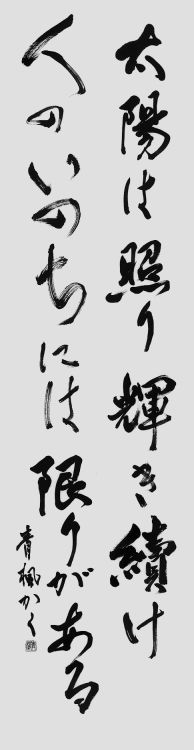 太陽は照り輝き續け
人のいのちには限りがある
青楓かく